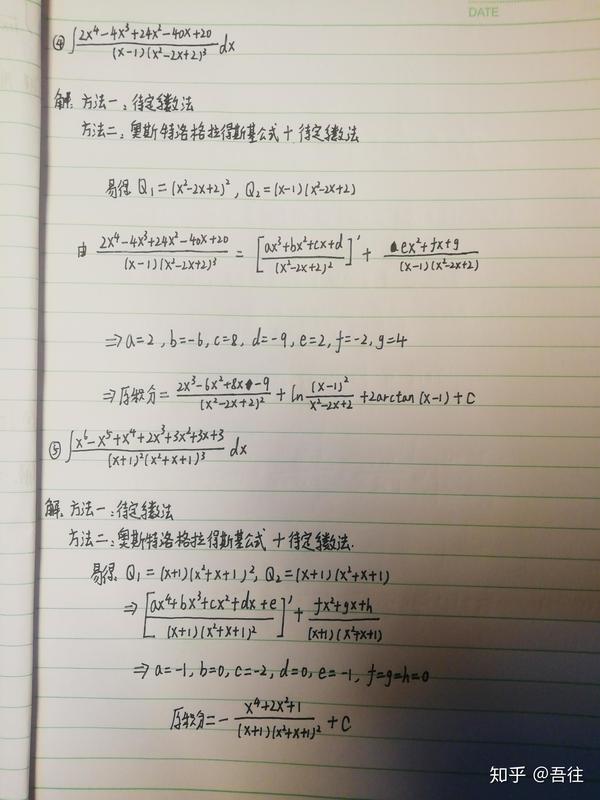 DATE
④ ∫ (2x⁴-4x³+24x²-40x+20)/((x-1)(x²-2x+2)³) dx
解: 方法一: 待定系数法
方法二: 奥斯特洛格拉得斯基公式+待定系数法
易得 Q₁=(x²-2x+2)², Q₂=(x-1)(x²-2x+2)
由 (2x⁴-4x³+24x²-40x+20)/((x-1)(x²-2x+2)³) = [(ax³+bx²+cx+d)/(x²-2x+2)²]' + (ex²+fx+g)/((x-1)(x²-2x+2))
⇒ a=2, b=-6, c=8, d=-9, e=2, f=-2, g=4
⇒ 原积分= (2x³-6x²+8x-9)/(x²-2x+2)² + ln (x-1)⁴/(x²-2x+2) + 2arctan(x-1)+C
⑤ ∫ (x⁶-x⁵+x⁴+2x³+3x²+3x+3)/((x+1)²(x²+x+1)³) dx
解: 方法一: 待定系数法
方法二: 奥斯特洛格拉得斯基公式+待定系数法.
易得: Q₁=(x+1)(x²+x+1)², Q₂=(x+1)(x²+x+1)
⇒ [(ax⁴+bx³+cx²+dx+e)/((x+1)(x²+x+1)²)]' + (fx²+gx+h)/((x+1)(x²+x+1))
⇒ a=-1, b=0, c=-2, d=0, e=-1, f=g=h=0
原积分= - (x⁴+2x²+1)/((x+1)(x²+x+1)²) + C
知乎 @吾往